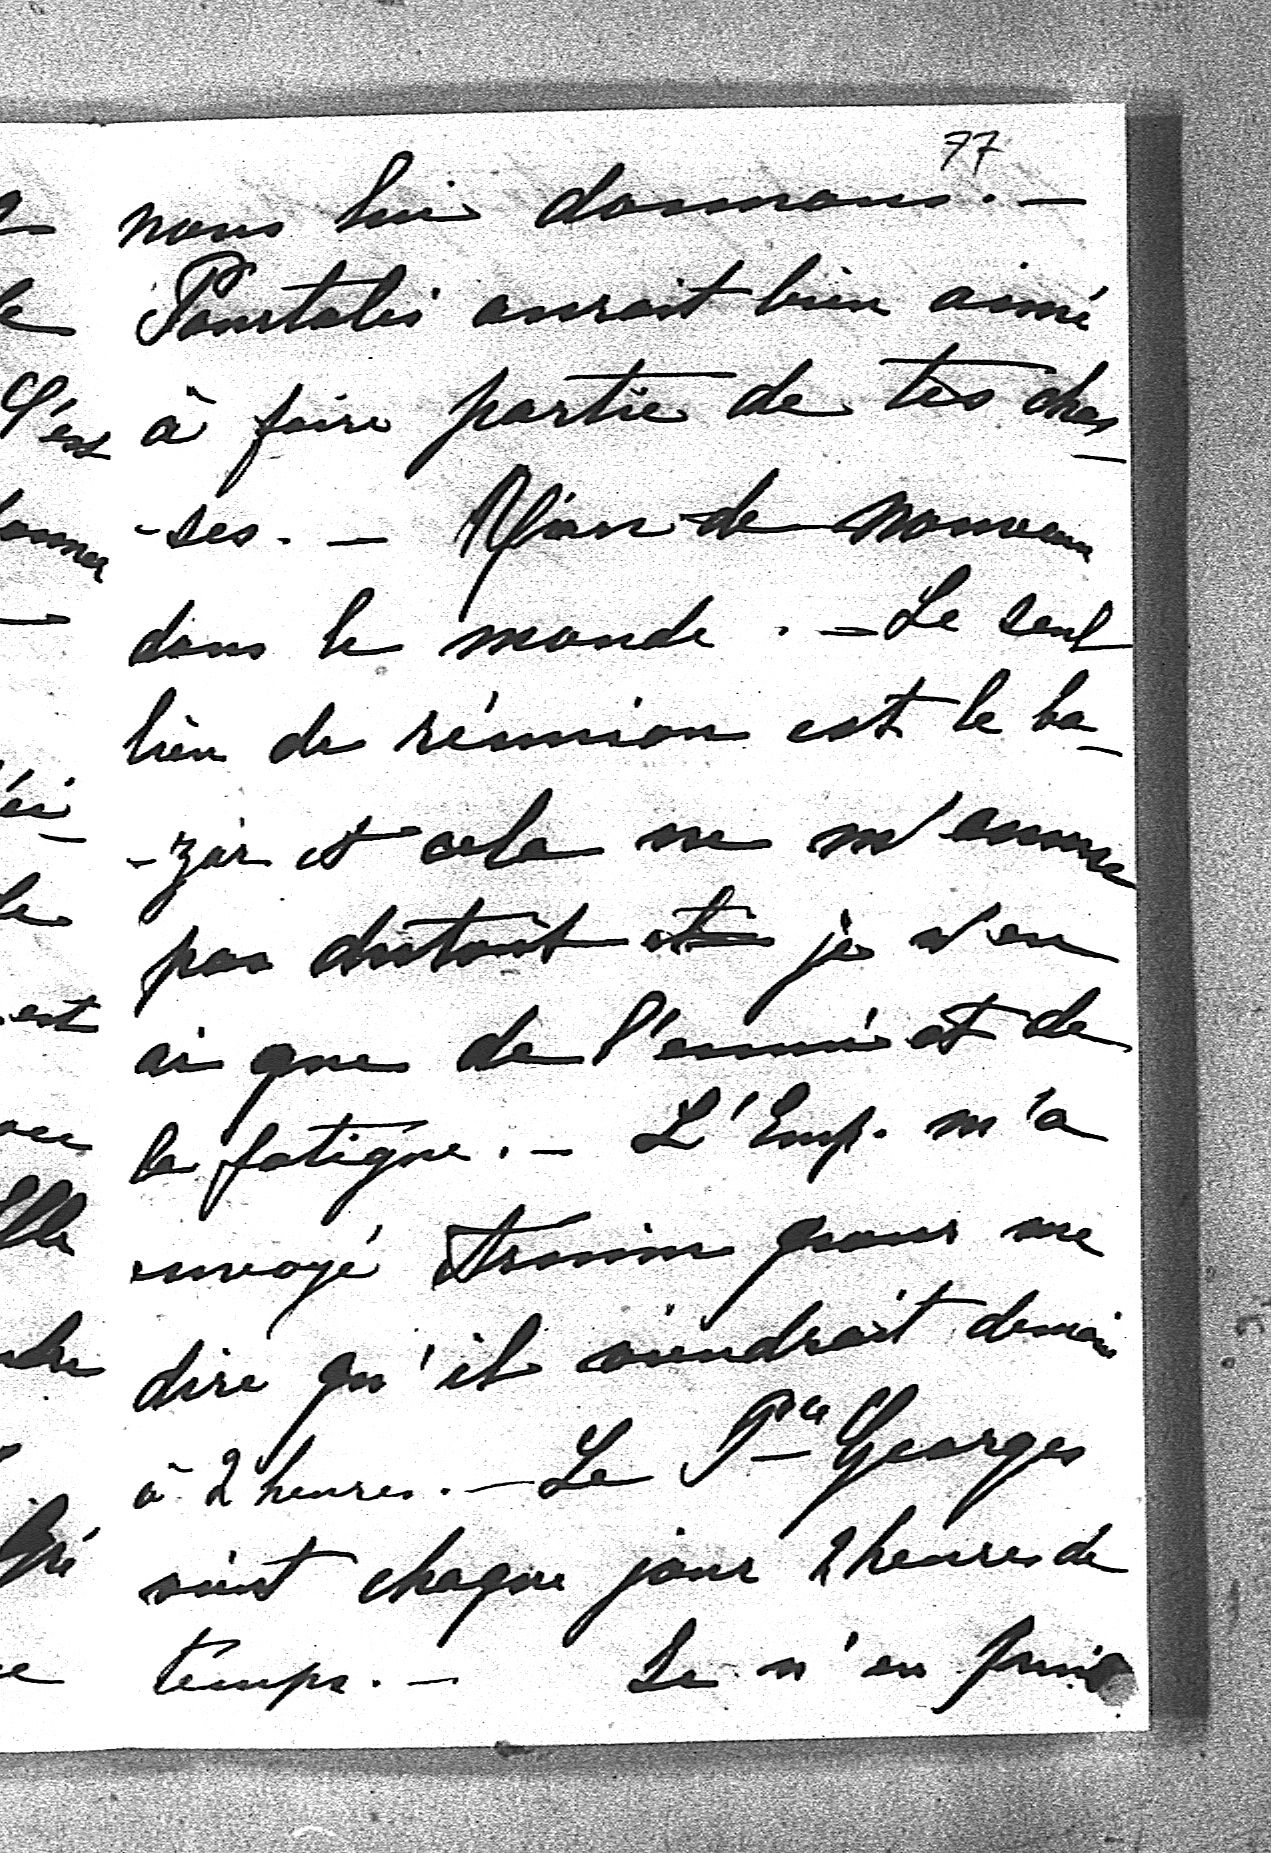 77
nous lui donnons. —
Pourtalès aurait bien aimé
à faire partie de tes chas
-ses. — Rien de nouveau
dans le monde. — Le seul
lieu de réunion est le ba-
-zar et cela ne m'amuse
pas dutout et je n'en
ai que de l'ennui et de
la fatigue. — L'Emp. m'a
envoyé pour me
dire qu'il viendrait demain
à 2 heures. — Le Pce Georges
vient chaque jour 2 heures de
temps. — Je n'en puis